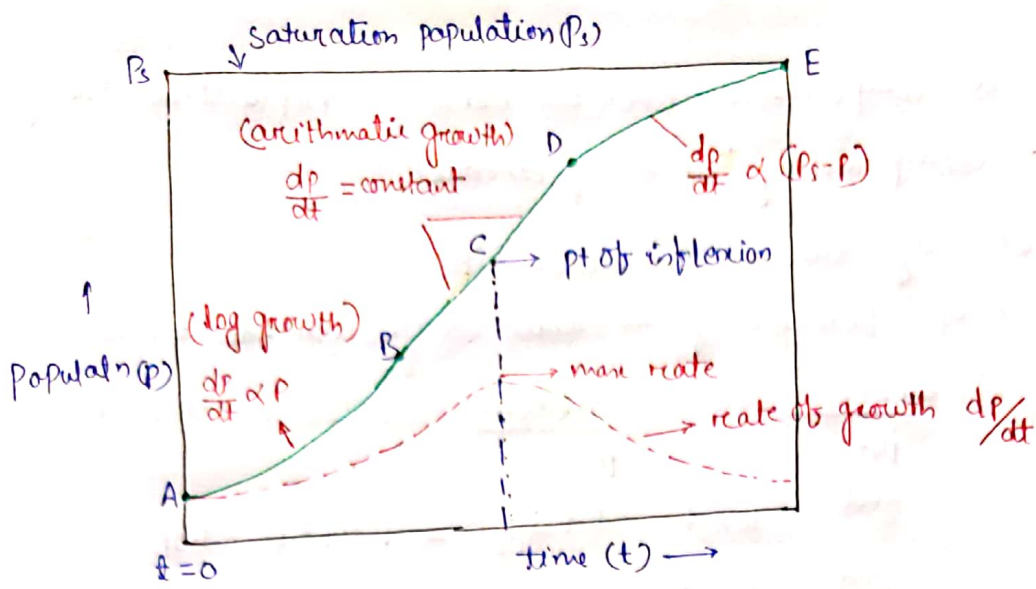 saturation population (Ps)
Ps
E
(arithmatic growth)
dp/dt = constant
D
dp/dt ∝ (Ps-P)
C
pt of inflexion
↑
(log growth)
B
populatn (p)
dp/dt ∝ P
max rate
rate of growth dp/dt
A
t = 0
time (t) →